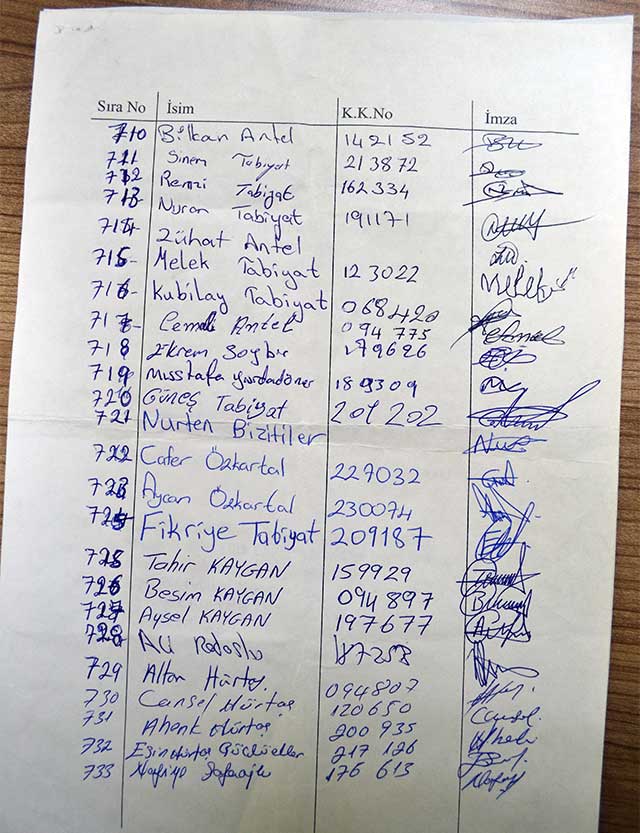 Sıra No İsim K.K.No İmza
710 Bilkan Antel 142152
711 Sinem Tabiyat 213872
712 Remzi Tabiyat 162334
713 Nuran Tabiyat 191171
714 Zühat Antel
715 Melek Tabiyat 123022 Melek
716 Kubilay Tabiyat 068420
717 Cemal Antel 094775
718 Ekrem Soybir 179626
719 Musstafa Yurdadöner 189309
720 Güneş Tabiyat 201202
721 Nurten Bizitiler
722 Cafer Özkartal 227032
723 Aycan Özkartal 230074
724 Fikriye Tabiyat 209187
725 Tahir KAYGAN 159929
726 Besim KAYGAN 094897
727 Aysel KAYGAN 197677
728 Ali
729 Altan 094807
730 Cansel Hürtaş 120650 Cansel
731 Ahenk Hürtaş 200935
732 217126
733 176613